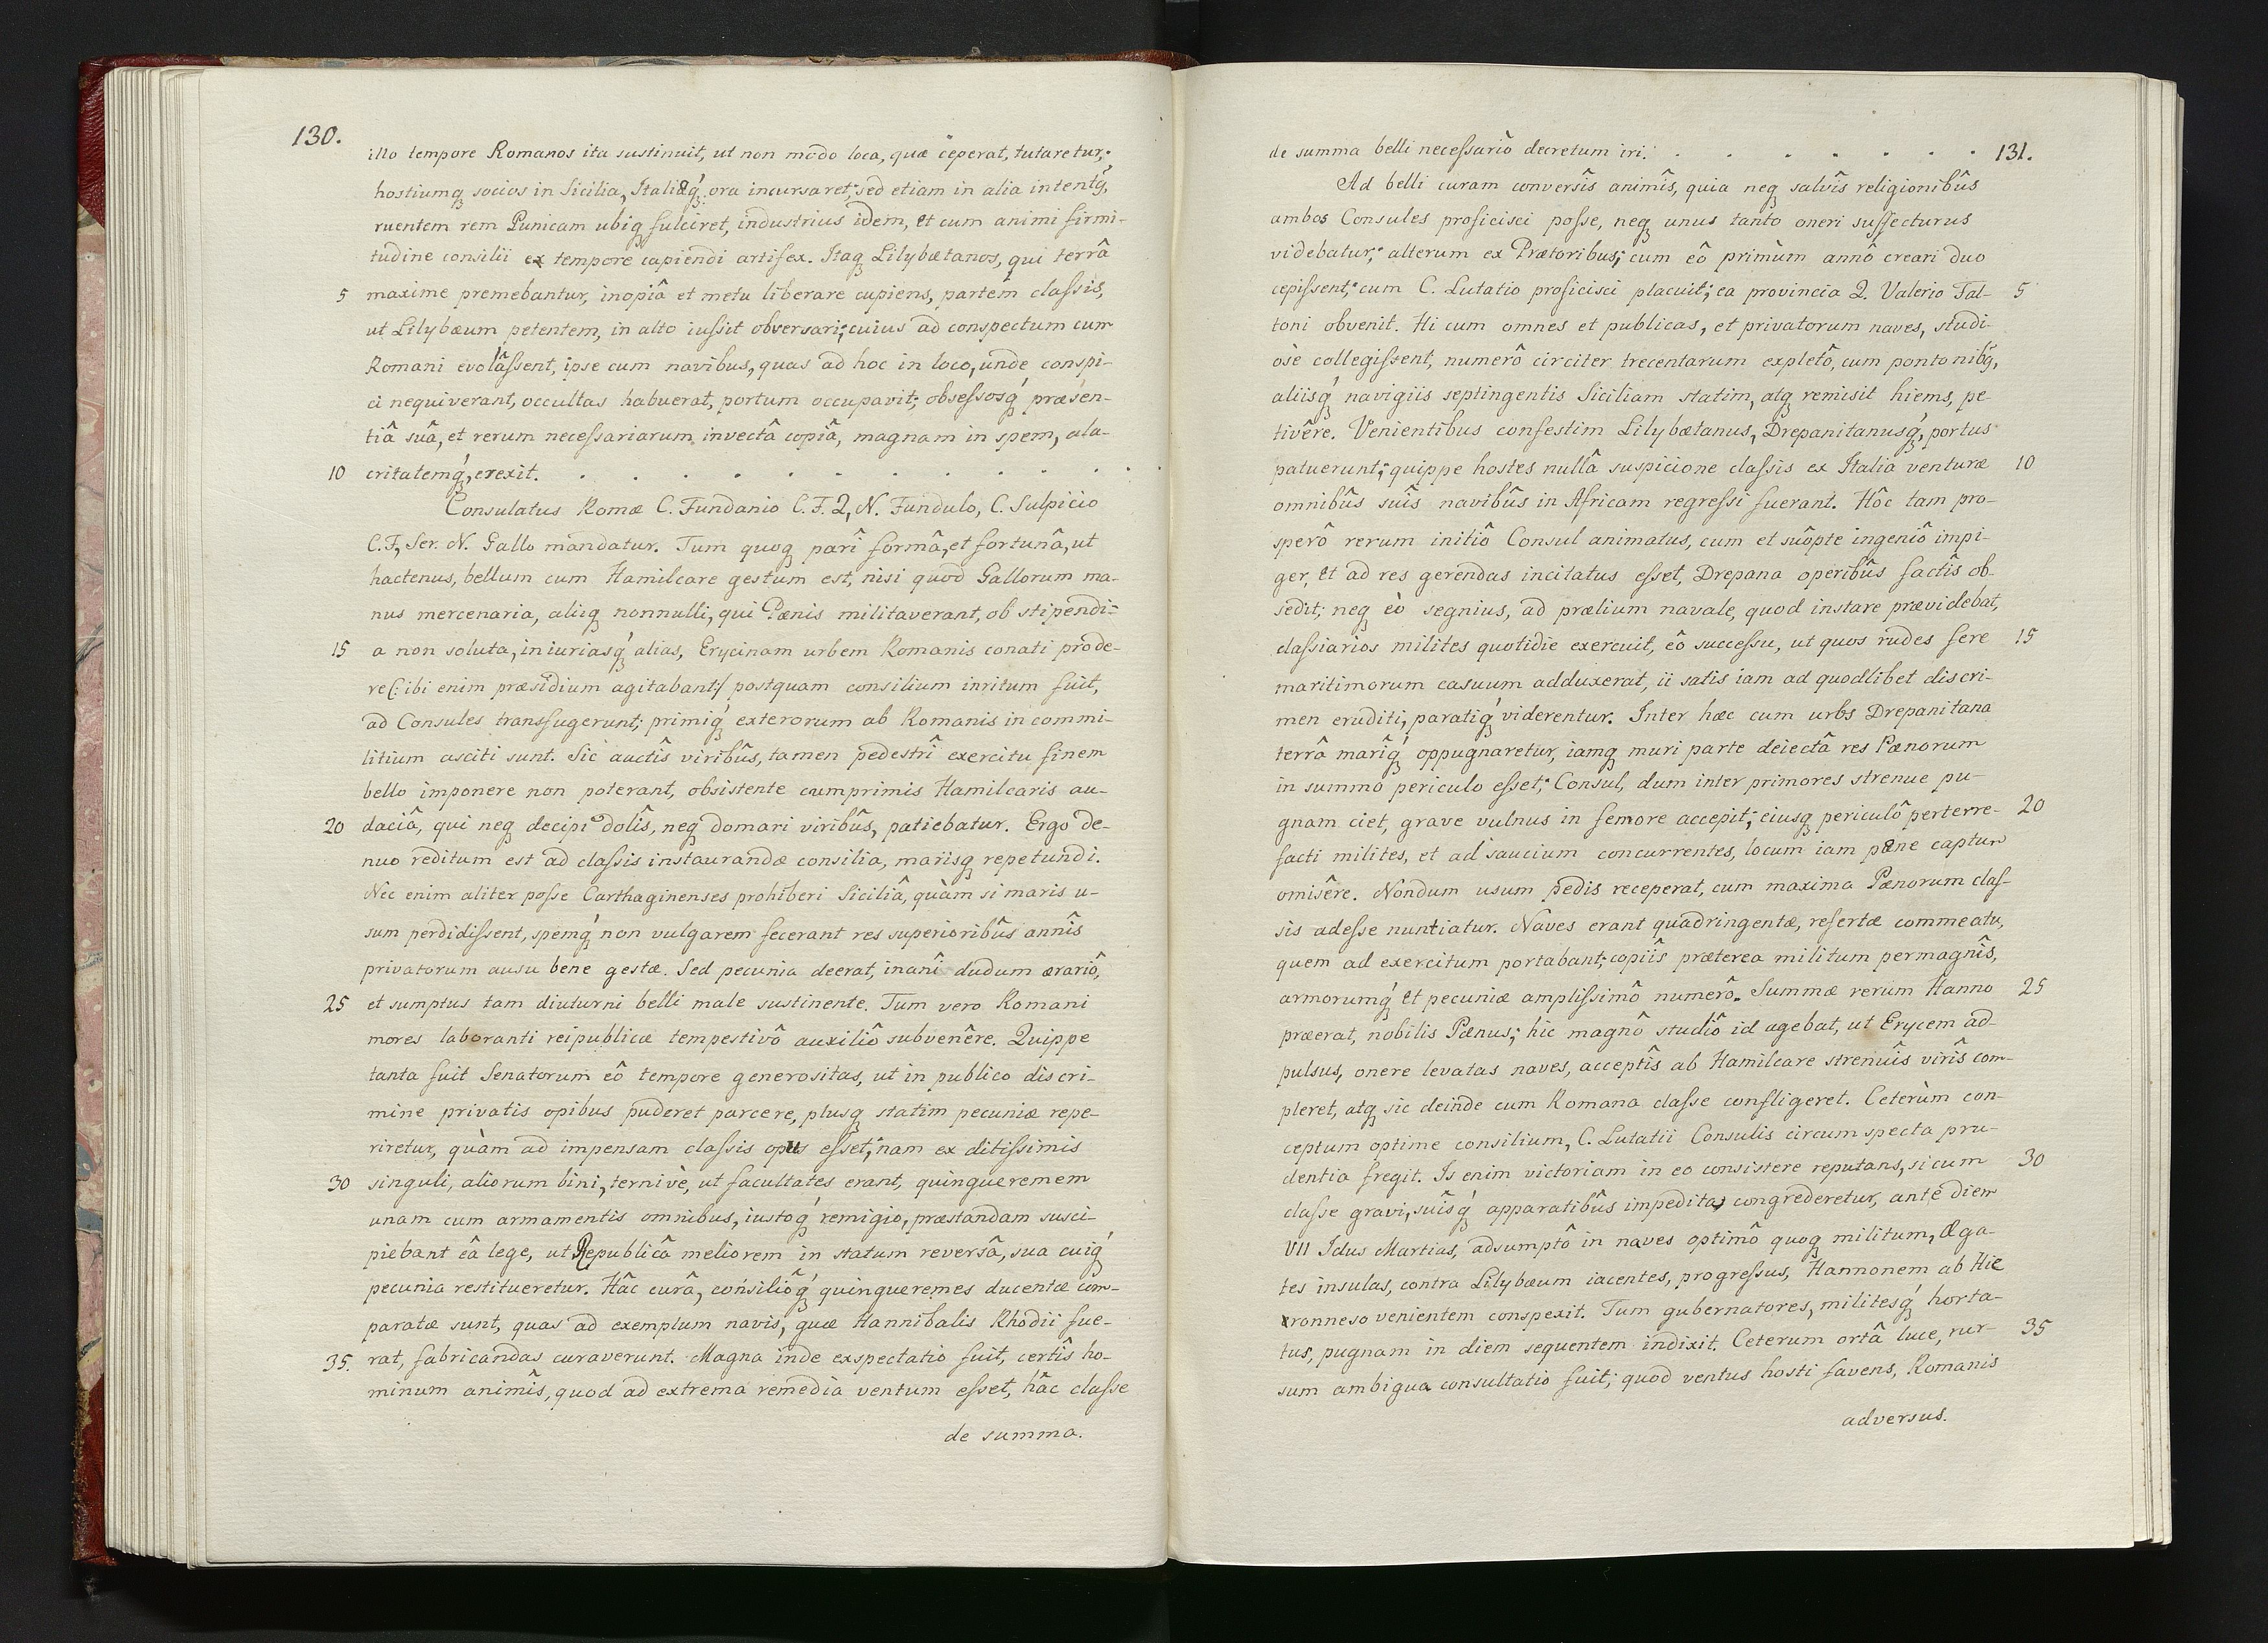 130.
illo tempore Romanos ita sustinuit, ut non modo loca, quæ ceperat, tutaretur,
hostiumq́ socios in Sicilia, Italiæq́; ora incursaret; sed etiam in alia intentq̃,
ruentem rem Punicam ubiq fulciret, industrius idem, et cum animi firmi-
tudine consilii ex tempore capiendi artifex. Itaq Lilybætanos, qui terrâ
5 maxime premebantur, inopiâ et metu liberare cupiens, partem claſsis,
ut Lilybæum petentem, in alto iuſsit obversari; cuius ad conspectum cum
Romani evolâſsent, ipse cum navibus, quas ad hoc in loco, unde conspi-
ci nequiverant, occultas habuerat, portum occupavit; obseſsosq́ præsen-
tiâ suâ, et rerum neceſsariarum invectâ copiâ, magnam in spem, ala-
10 critatemq́, erexit. . . . . . . . . . . .
Consulatus Romæ C. Fundanio C. F. Q, N. Fundulo, C. Sulpicio
C. F, Ser. N. Gallo mandatur. Tum quoq parî formâ, et fortunâ, ut
hactenus, bellum cum Hamilcare gestum est, nisi quod Gallorum ma-
nus mercenaria, aliiq nonnulli, qui Pænis militaverant, ob stipendi-
15 a non soluta, iniuriasq́ alias, Erycinam urbem Romanis conati prode-
re (: ibi enim præsidium agitabant :) postquam consilium inritum fuit,
ad Consules transfugerunt; primiq́ exterorum ab Romanis in commi-
litium asciti sunt. Sic auctîs viribûs, tamen pedestrî exercitu finem
bello imponere non poterant, obsistente cumprimis Hamilcaris au-
20 daciâ, qui neq decipi dolîs, neq domari viribûs, patiebatur. Ergo de-
nuo reditum est ad claſsis instaurandæ consilia, mariisq repetundi.
Nec enim aliter poſse Carthaginenses prohiberi Siciliâ, quàm si maris u-
sum perdidiſsent, spemq́ non vulgarem fecerant res superioribûs annîs
privatorum ausu bene gestæ. Sed pecunia deerat, inanî dudum ærariô,
25 et sumptus tam diuturni belli male sustinente. Tum vero Romani
mores laboranti reipublicæ tempestivô auxiliô subvenêre. Quippe
tanta fuit Senatorum eô tempore generositas, ut in publico discri-
mine privatis opibus puderet parcere, plusq statim pecuniæ repe-
riretur, quàm ad impensam claſsis opus eſset; nam ex ditiſsimis
30 singuli, aliorum bini, ternivè, ut facultates erant, quinqueremem
unam cum armamentis omnibus, iustoq́ remigio, præstandam susci-
piebant eâ lege, ut Republicâ meliorem in statum reversâ, sua cuiq́
pecunia restitueretur. Hâc curâ, consiliôq́ quinqueremes ducentæ com-
paratæ sunt, quas ad exemplum navis, quæ Hannibalis Rhodii fue-
35. rat, fabricandas curaverunt. Magna inde exspectatio fuit, certîs ho-
minum animîs, quod ad extrema remedia ventum eſset, hâc claſse
de summa.
131.
de summa belli neceſsariò decretum iri. . . . . . . .
Ad belli curam conversîs animîs, quia neq salvîs religionibûs
ambos Consules proficisci poſse, neq unus tanto oneri suffecturus
videbatur; alterum ex Prætoribus; cum eô primùm annô creari duo
cepiſsent; cum C. Lutatio proficisci placuit; ea provincia Q. Valerio Fal- 5
toni obvenit. Hi cum omnes et publicas, et privatorum naves, studi-
osè collegiſsent, numerô circiter trecentarum expletô, cum pontonibq̃,
aliisq́ navigiis septingentis Siciliam statim, atq remisit hiems, pe-
tivêre. Venientibus confestim Lilybætanus, Drepanitanusq́, portus
patuerunt; quippe hostes nullâ suspicione claſsis ex Italia venturæ 10
omnibûs suîs navibûs in Africam regreſsi fuerant. Hôc tam pro-
sperô rerum initiô Consul animatus, cum et suôpte ingeniô impi-
ger, et ad res gerendas incitatus eſset, Drepana operibûs factîs ob-
sedit; neq eò segnius, ad prælium navale, quod instare prævidebat,
claſsiarios milites quotidie exercuit, eô succeſsu, ut quos rudes fere 15
maritimorum casuum adduxerat, ii satis iam ad quodlibet discri-
men eruditi, paratiq́ viderentur. Inter hæc cum urbs Drepanitana
terrâ marîq́ oppugnaretur, iamq muri parte deiectâ res Pænorum
in summo periculo eſset; Consul, dum inter primores strenue pu-
gnam ciet, grave vulnus in femore accepit; eiusq periculô perterre- 20
facti milites, et ad saucium concurrentes, locum iam pæne captum
omisêre. Nondum usum pedis receperat, cum maxima Pænorum claſ-
sis adeſse nuntiatur. Naves erant quadringentæ, refertæ commeatu,
quem ad exercitum portabant; copiîs præterea militum permagnîs,
armorumq́ et pecuniæ ampliſsimô numerô. Summæ rerum Hanno 25
præerat, nobilis Pænus; hic magnô studiô id agebat, ut Erycem ad-
pulsus, onere levatas naves, acceptîs ab Hamilcare strenuîs virîs com-
pleret, atq sic deinde cum Romana claſse confligeret. Ceterùm con-
ceptum optime consilium, C. Lutatii Consulis circumspecta pru-
dentia fregit. Is enim victoriam in eo consistere reputans, si cum 30
claſse gravi, suîsq́ apparatibûs impedita, congrederetur, ante diem
VII Idus Martias, adsumptô in naves optimô quoq militum, Æga-
tes insulas, contra Lilybæum iacentes, progreſsus, Hannonem ab Hie
ronneso venientem conspexit. Tum gubernatores, militesq́ horta-
tus, pugnam in diem sequentem indixit. Ceterum ortâ luce, rur- 35
sum ambigua consultatio fuit; quod ventus hosti favens, Romanis
adversus.